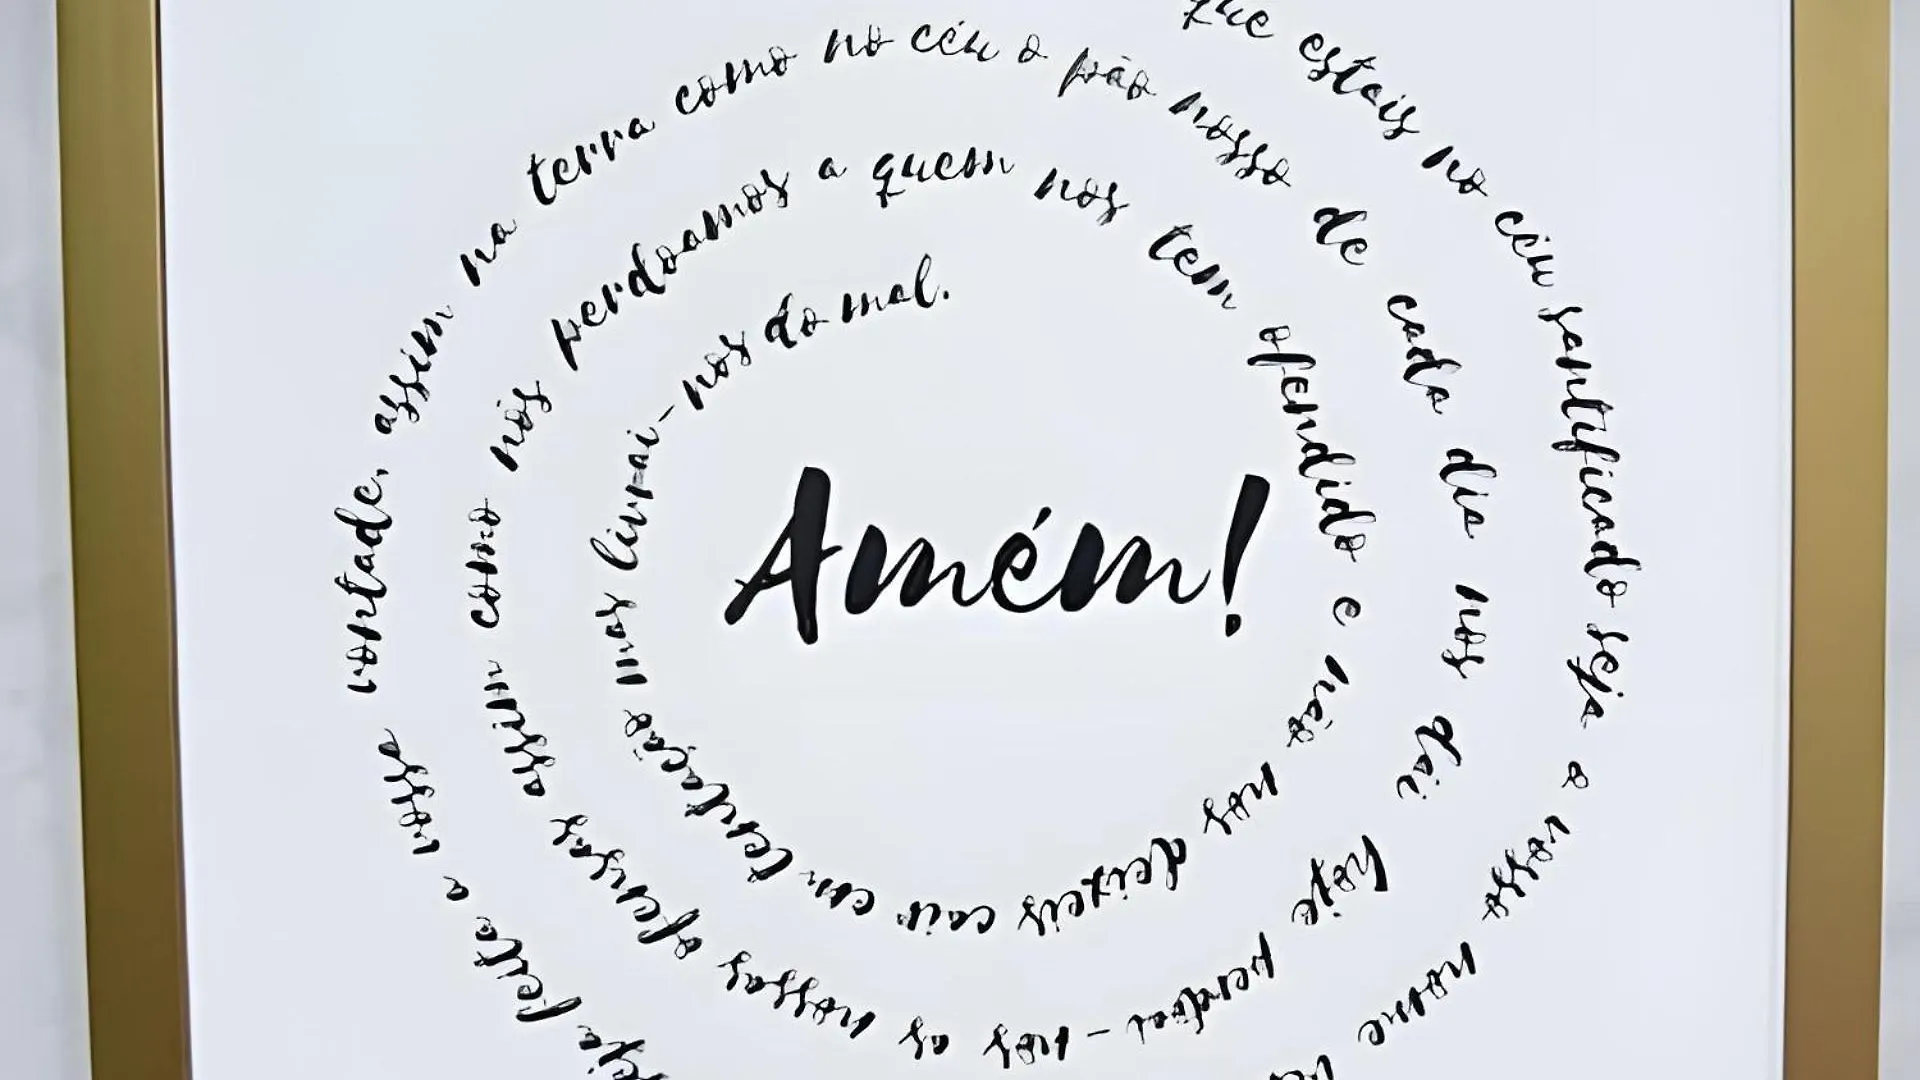 que estais no céu santificado seja o vosso nome
seja feita a vossa vontade, assim na terra como no céu o pão nosso de cada dia nos dai hoje perdoai-nos as nossas ofensas assim como nós perdoamos a quem nos tem ofendido e não nos deixeis cair em tentação mas livrai-nos do mal.
Amém!